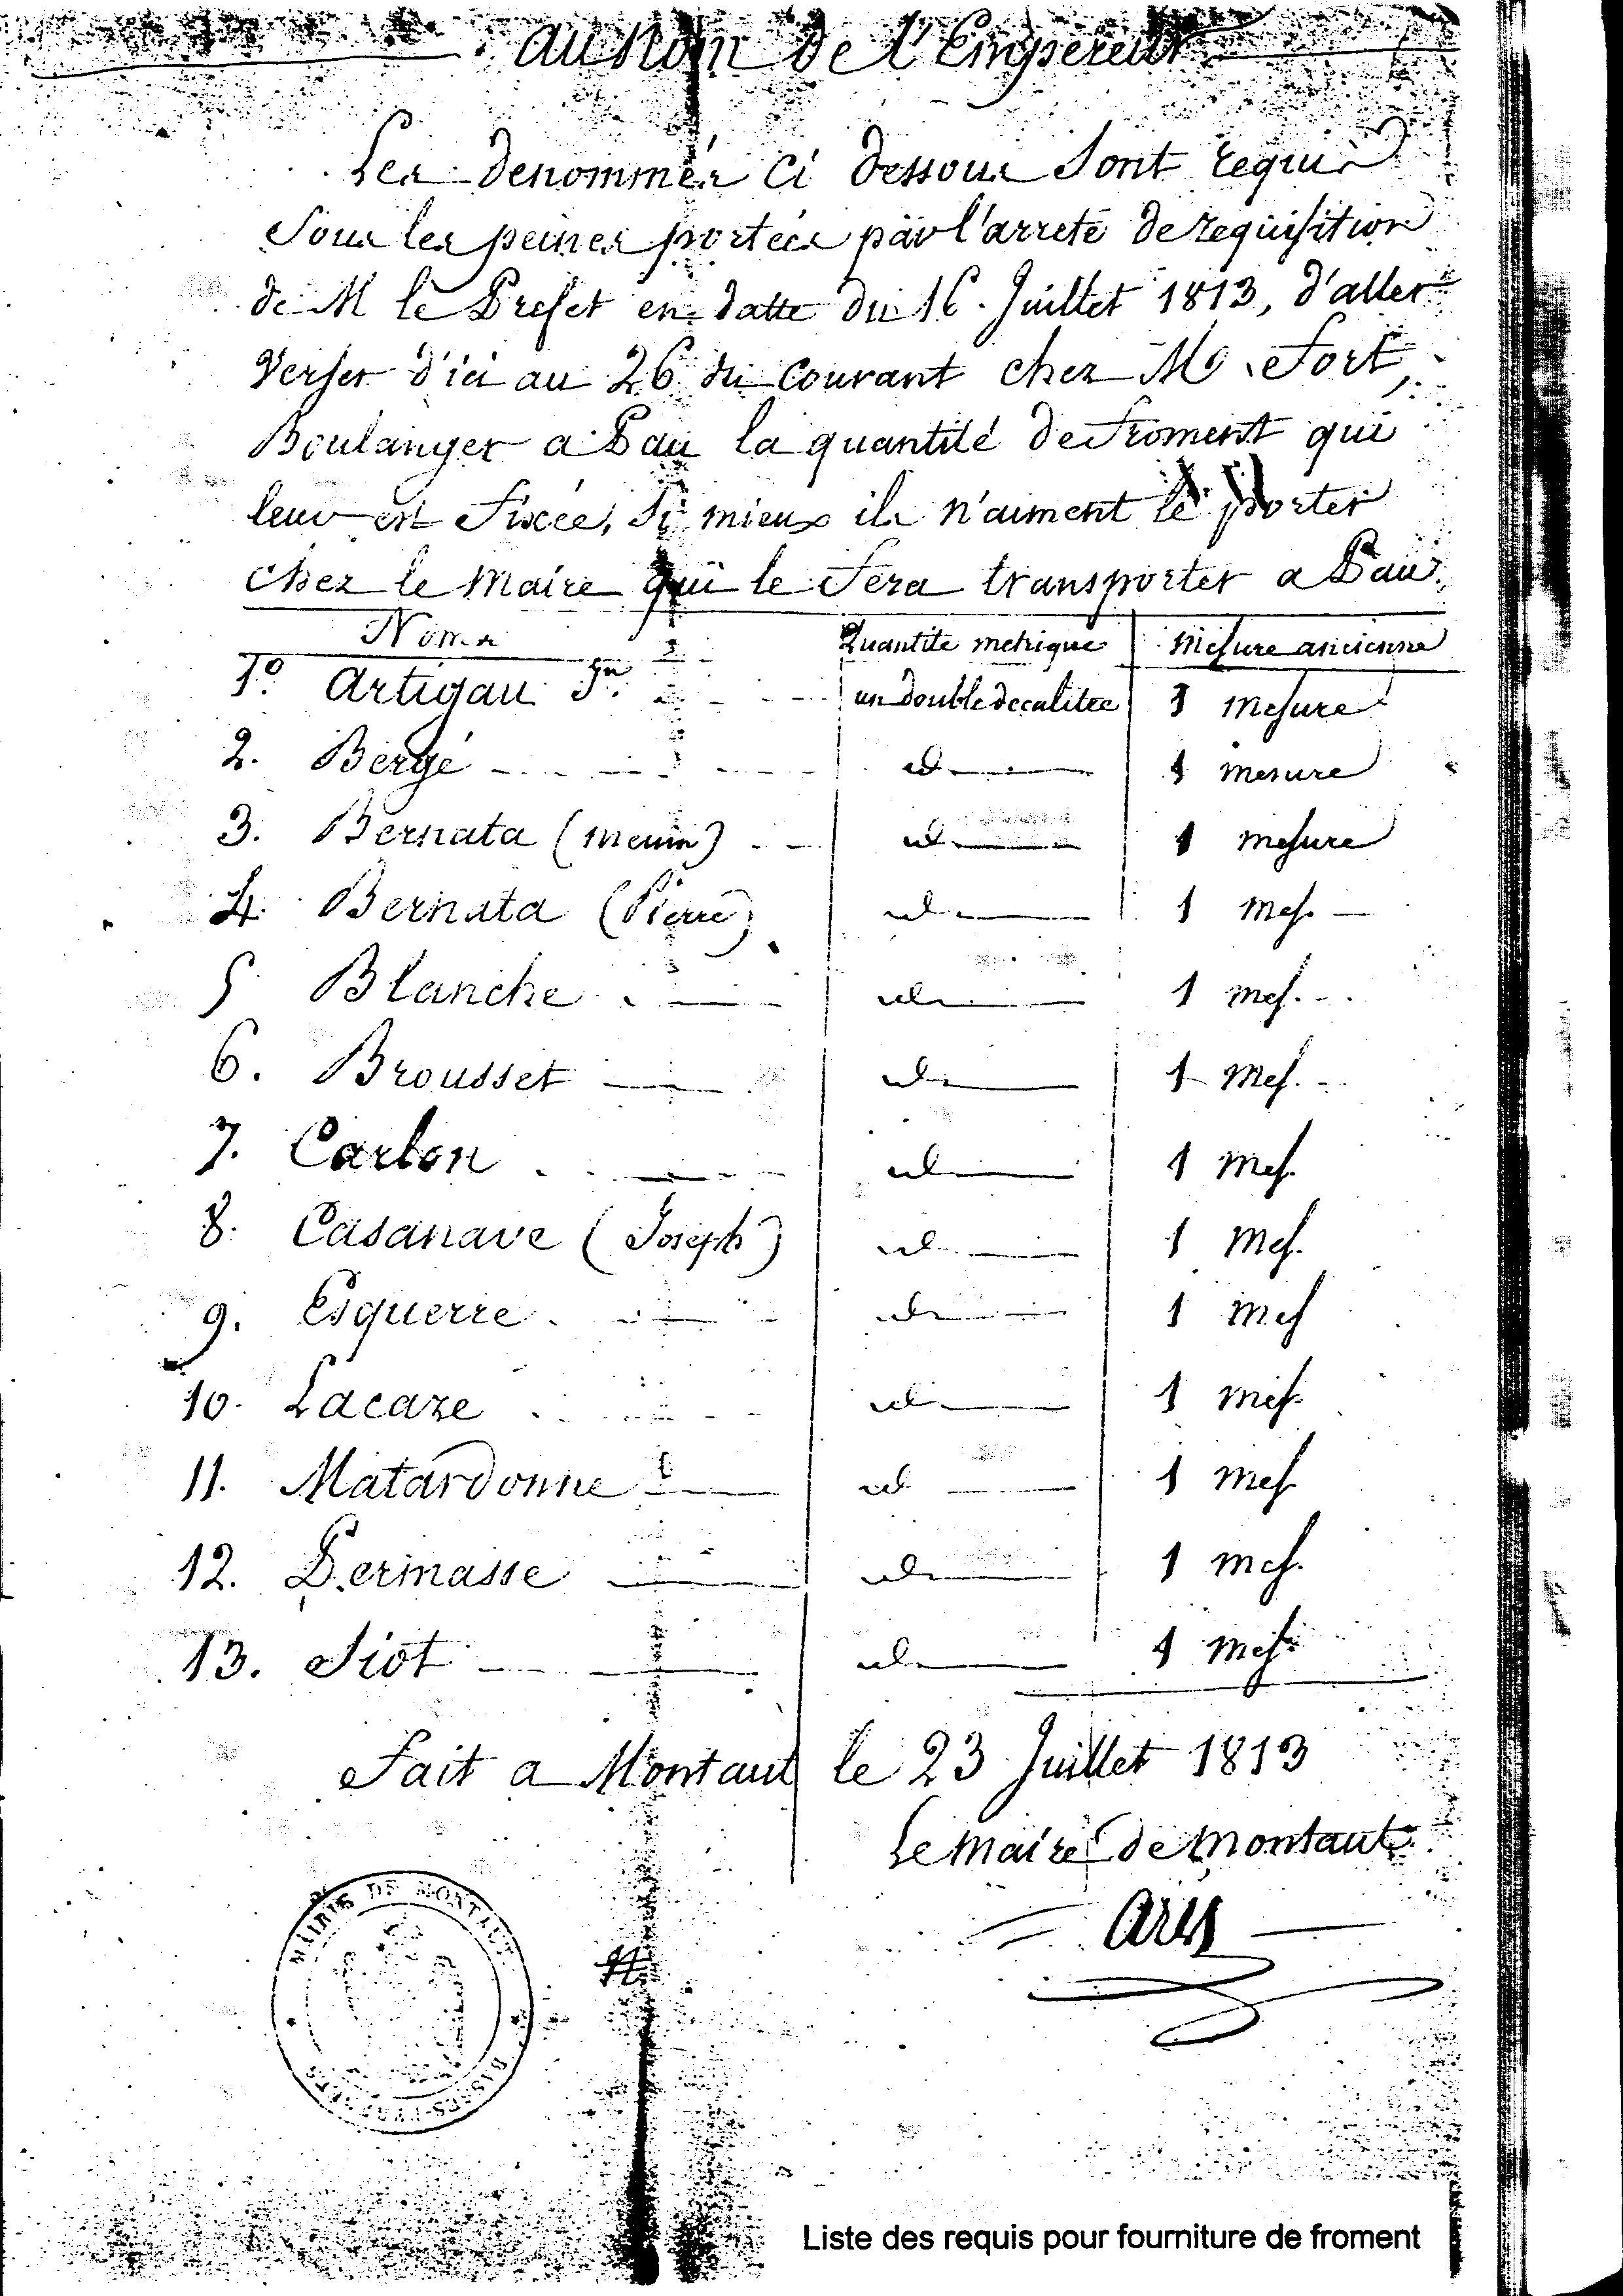 au Nom de l'Empereur
Les denommés ci dessous sont requis
sous les peines portées par l'arreté de requisition
de M le Prefet en datte du 16 Juillet 1813, d'aller
verser d'ici au 26 du courant chez Mr Fort,
Boulanger a Pau la quantité de froment qui
leur est fixée, si mieux ils n'aiment le porter
chez le Maire qui le fera transporter a Pau.
Noms Quantité metrique Mesure ancienne
1º Artigau Jn un double decalitre 1 Mesure
2. Bergé id 1 mesure
3. Bernata ( id 1 mesure
4. Bernata (Pierre) id 1 Mes.
5 Blanche id 1 mes.
6. Brousset id 1 Mes.
7. Carbon id 1 Mes.
8. Casanave (Joseph) id 1 Mes.
9. Esquerre id 1 Mes
10. Lacaze id 1 mes.
11. Matardonne id 1 mes
12. Permasse id 1 mes.
13. Siot id 1 mes.
Fait a Montaut le 23 Juillet 1813
Le Maire de Montaut
MAIRIE DE MONTAUT
BASSES-PYRENEES
Liste des requis pour fourniture de froment